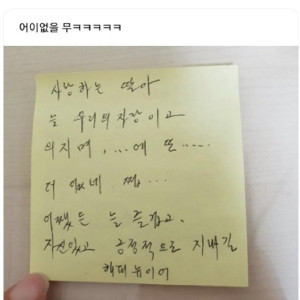 어이없을 무ㅋㅋㅋㅋㅋ
사랑하는 딸아
늘 우리의 자랑이고
의지며, ....에 또.....
더 없네 쩝...
어쨌든 늘 즐겁고.
자신있고 긍정적으로 지내길
해피뉴이어